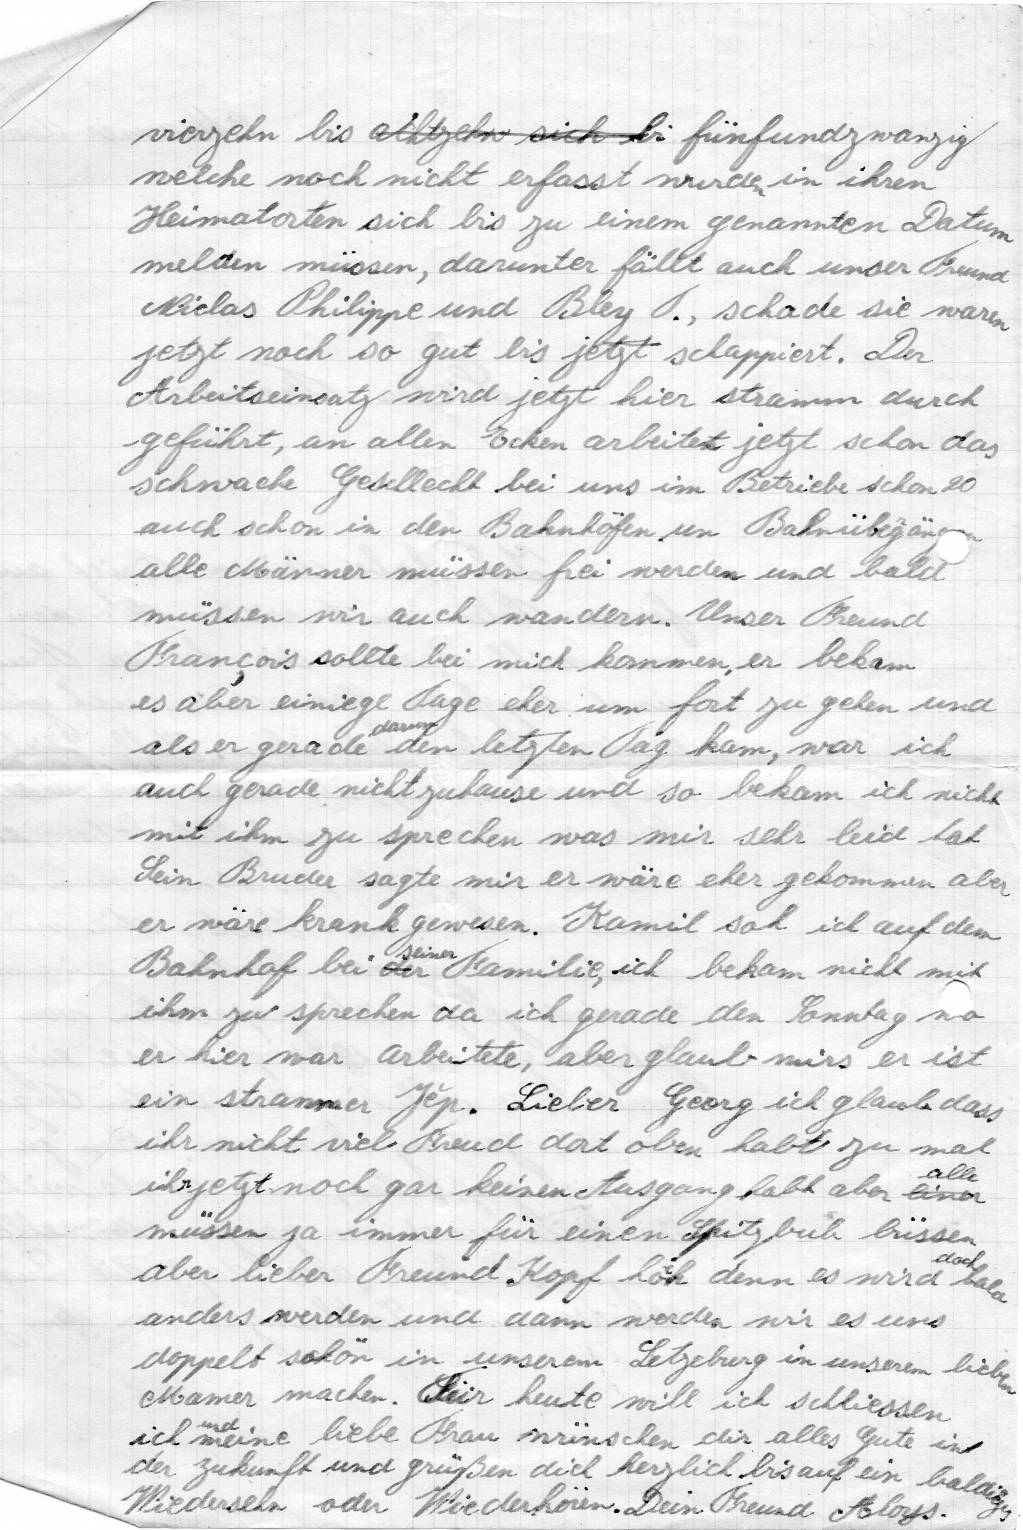 vierzehn bis achtzehn sich bi fünfundzwanzig
welche noch nicht erfasst wurden in ihren
Heimatorten sich bis zu einem genannten Datum
melden müssen, darunter fällt auch unser Freund
Niclas Philippe und Bley J., schade sie waren
jetzt noch so gut bis jetzt schappiert. Der
Arbeitseinsatz wird jetzt hier stramm durch
geführt, an allen Ecken arbeitet jetzt schon das
schwache Geschlecht bei uns im Betriebe schon 20
auch schon in den Bahnhöfen un Bahnübergängen
alle Männer müssen frei werden und bald
müssen wir auch wandern. Unser Freund
François sollte bei mich kommen, er bekam
es aber einiege Tage eher um fort zu gehen und
als er gerade darum den letzten Tag kam, war ich
auch gerade nicht zuhause und so bekam ich nicht
mit ihm zu sprechen was mir sehr leid tat
Sein Bruder sagte mir er wäre eher gekommen aber
er wäre krank gewesen. Kamil sah ich auf dem
Bahnhof bei der seiner Familie, ich bekam nicht mit
ihm zu sprechen da ich gerade den Sonntag wo
er hier war arbeitete, aber glaub mirs er ist
ein strammer Jĕp. Lieber Georg ich glaub dass
ihr nicht viel Freud dort oben habt zu mal
ihr jetzt noch gar keinen Ausgang habt aber einer alle
müssen ja immer für einen Spitzbub büssen
aber lieber Freund Kopf höh denn es wird doch bald
anders werden und dann werden wir es uns
doppelt schön in unserem Letzeburg in unserem lieben
Mamer machen. Für heute will ich schliessen
ich und meine liebe Frau wünschen dir alles Gute in
der zukunft und grüßen dich herzlich bis auf ein baldiges
Wiedersehn oder Wiederhören. Dein Freund Aloys.